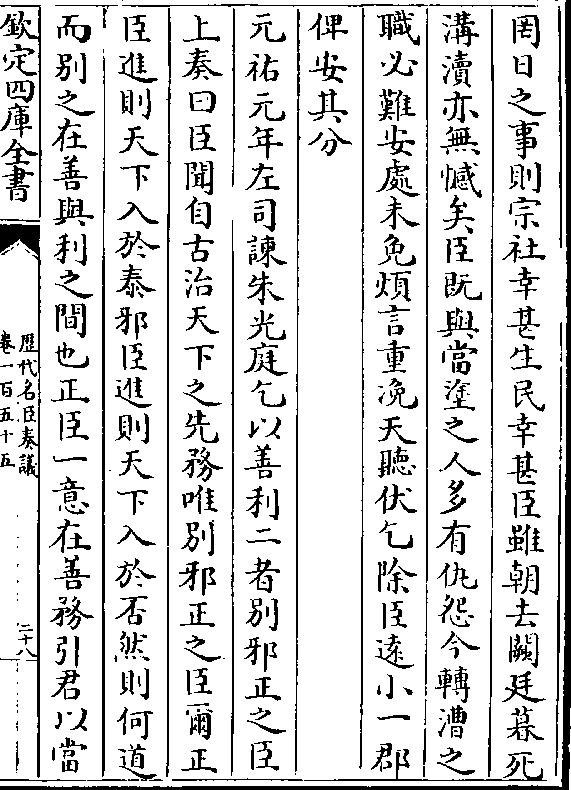 罔日之事則宗社幸甚生民幸甚臣雖朝去闕廷暮死
溝瀆亦無憾矣臣既與當塗之人多有仇怨今轉漕之
職必難安處未免煩言重浼天聽伏乞除臣遠小一郡
俾安其分
元祐元年左司諫朱光庭乞以善利二者别邪正之臣
上奏曰臣聞自古治天下之先務唯别邪正之臣爾正
臣進則天下入於泰邪臣進則天下入於否然則何道
而别之在善與利之間也正臣一意在善務引君以當
欽定四庫全書
歷代名臣奏議
卷一百五十五
二十八